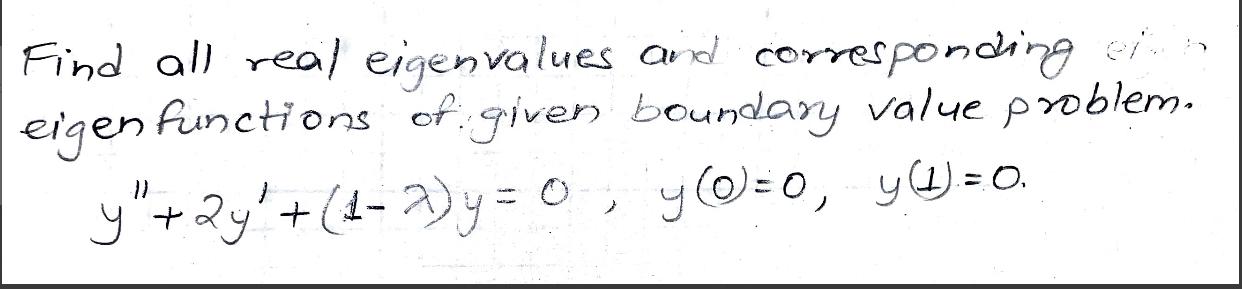 Find all real eigenvalues and corresponding
eigenfunctions of given boundary value problem.
y"+2y'+(1-λ)y=0, y(0)=0, y(1)=0.